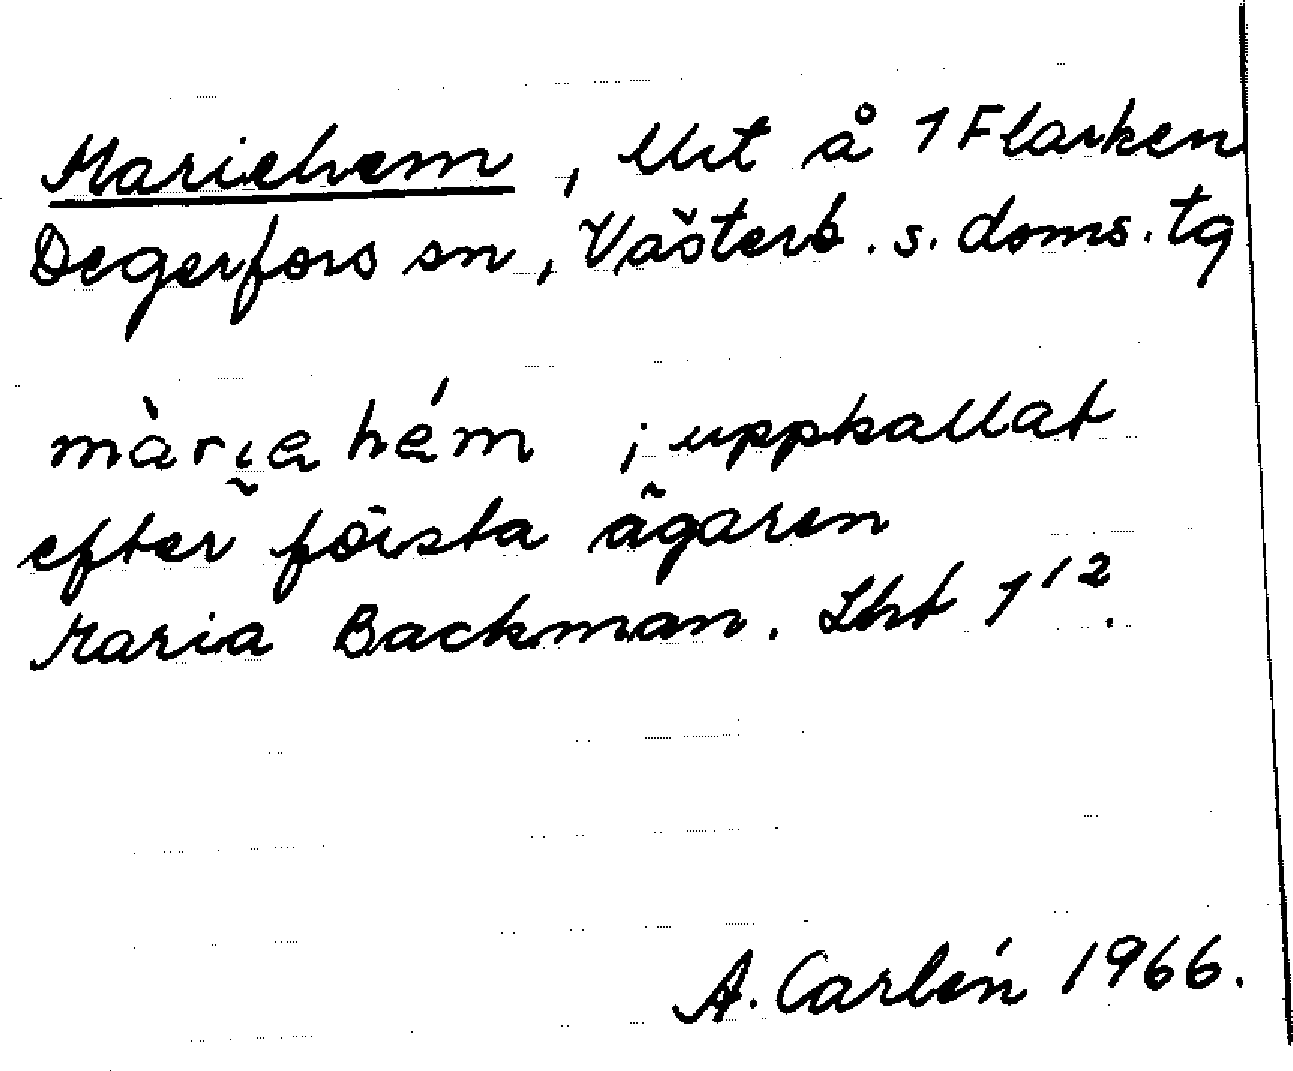 Mariehem, Urt å 1 Flarken
Degerfors sn, Västerb. s. doms. tg
màri̯ahém ; uppkallat
efter första ägaren
Maria Backman. Lht 1¹².
A. Carlén 1966.